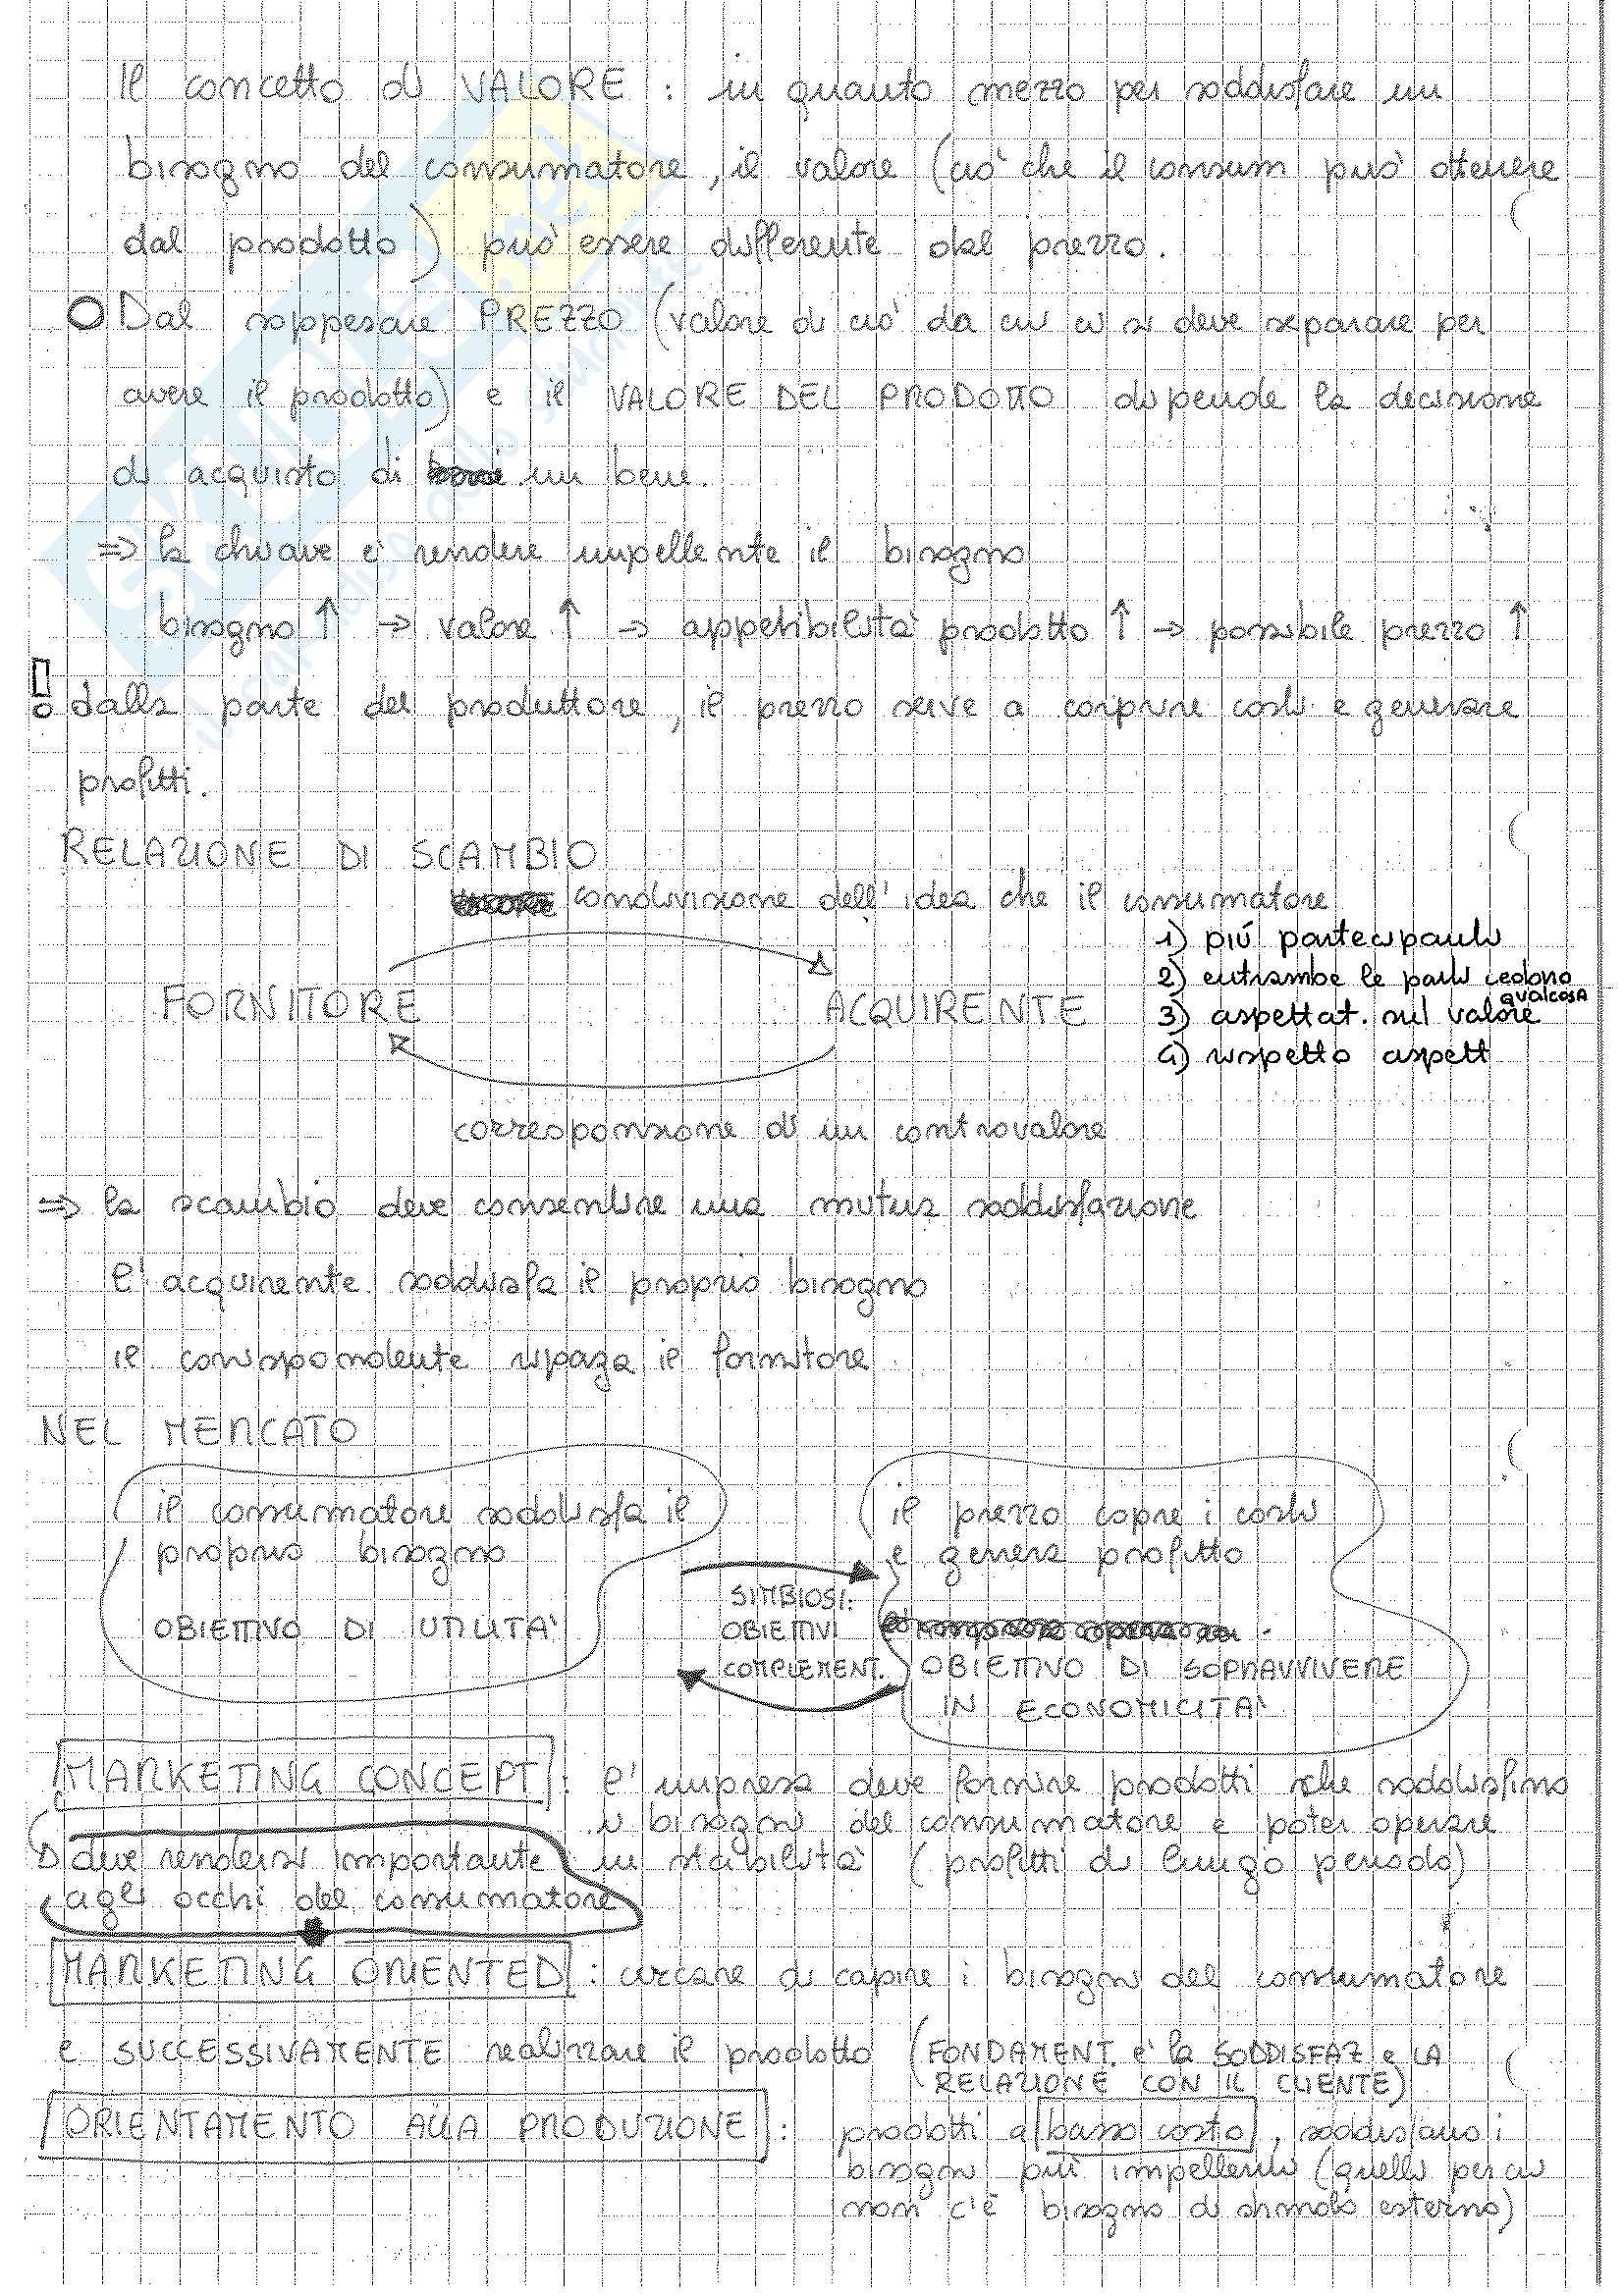 Il concetto di VALORE : in quanto mezzo per soddisfare un
bisogno del consumatore, il valore (ciò che il consum può ottenere
dal prodotto) può essere differente dal prezzo.
Dal soppesare PREZZO (valore di ciò da cui ci si deve separare per
avere il prodotto) e il VALORE DEL PRODOTTO dipende la decisione
di acquisto di un bene.
=> la chiave è rendere impellente il bisogno
bisogno ↑ → valore ↑ → appetibilità prodotto ↑ → possibile prezzo ↑
! dalla parte del produttore, il prezzo serve a coprire costi e generare
profitti.
RELAZIONE DI SCAMBIO
condivisione dell'idea che il consumatore
1) più partecipanti
2) entrambe le parti cedono
qualcosa
FORNITORE ACQUIRENTE
3) aspettat. sul valore
4) rispetto aspett
corresponsione di un controvalore
=> la scambio deve consentire una mutua soddisfazione
l'acquirente soddisfa il proprio bisogno
il corrispondente ripaga il fornitore
NEL MERCATO
il consumatore soddisfa il
proprio bisogno
OBIETTIVO DI UTILITA'
SIMBIOSI:
OBIETTIVI
COMPLEMENT.
il prezzo copre i costi
e genera profitto
OBIETTIVO DI SOPRAVVIVERE
IN ECONOMICITA'
MARKETING CONCEPT : l'impresa deve fornire prodotti che soddisfino
i bisogni del consumatore e poter operare
in stabilità (profitti di lungo periodo)
deve rendersi importante
agli occhi del consumatore
MARKETING ORIENTED : cercare di capire i bisogni del consumatore
e SUCCESSIVAMENTE realizzare il prodotto (FONDAMENT. è la SODDISFAZ e LA
RELAZIONE CON IL CLIENTE)
ORIENTAMENTO ALLA PRODUZIONE : prodotti a basso costo, soddisfano i
bisogni più impellenti (quelli per cui
non c'è bisogno di stimolo esterno)